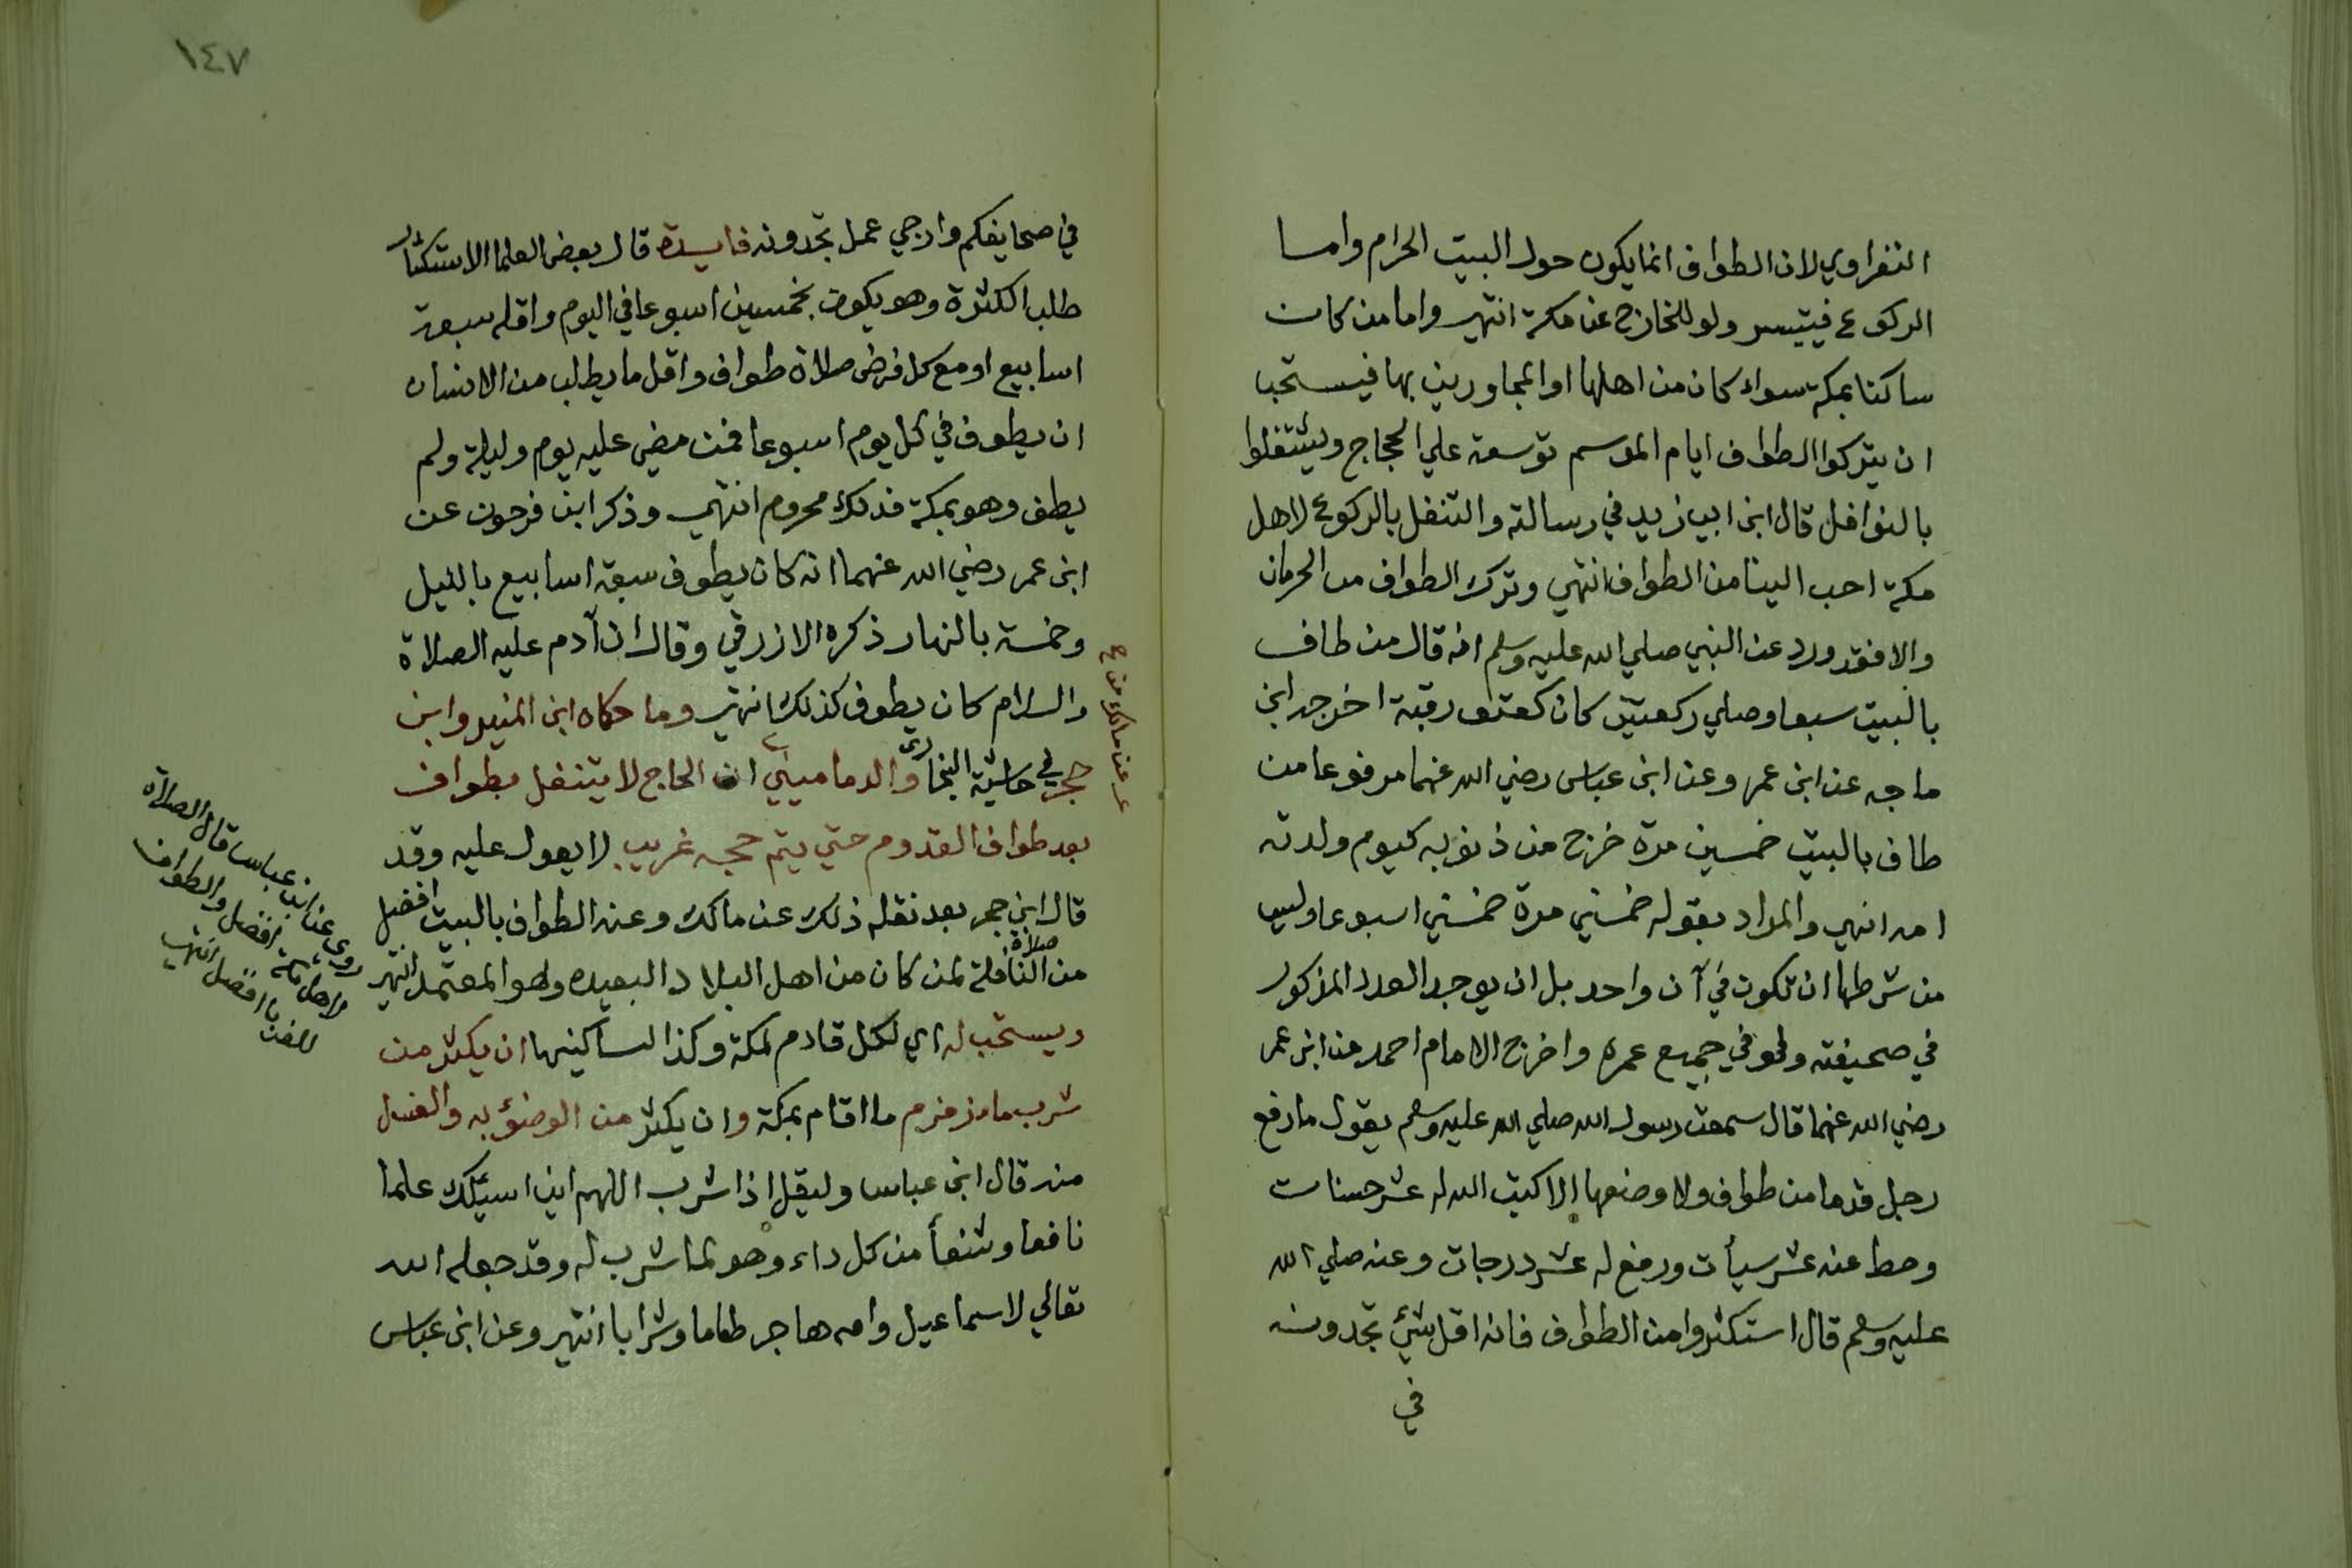 النفراوي لان الطواف انما يكون حول البيت الحرام واما
الركوع فيتيسر ولو للخارج عن مكة انتهي واما من كان
ساكنا بمكة سواء كان من اهلها او المجاورين بها فيستحب
ان يتركوا الطواف ايام الموسم توسعة علي الحجاج ويشتغلوا
بالنوافل قال ابن ابي زيد في رسالته والتنفل بالركوع لاهل
مكة احب الينا من الطواف انتهي وترك الطواف من الحرمان
والا فقد ورد عن النبي صلي الله عليه وسلم انه قال من طاف
بالبيت سبعا وصلي ركعتين كان كعتق رقبة اخرجه ابن
ماجه عن ابن عمر وعن ابن عباس رضي الله عنهما مرفوعا من
طاف بالبيت خمسين مرة خرج من ذنوبه كيوم ولدته
امه انتهي والمراد بقوله خمسين مرة خمسين اسبوعا وليس
من شرطها ان تكون في آن واحد بل ان يوجد العدد المذكور
في صحيفته ولو في جميع عمره واخرج الامام احمد عن ابن عمر
رضي الله عنهما قال سمعت رسول الله صلي الله عليه وسلم يقول ما رفع
رجل قدما من طواف ولا وضعها الا كتب الله له عشر حسنات
وحط عنه عشر سيأت ورفع له عشر درجات وعنه صلي الله
عليه وسلم قال استكثروا من الطواف فانه اقل شئ تجدونه
في
١٤٧
في صحايفكم وارجي عمل تجدونه فايدة قال بعض العلما الاستكثار
طلب الكثرة وهو يكون بخمسين اسبوعا في اليوم واقله سبعة
اسابيع او مع كل فرض صلاة طواف واقل ما يطلب من الانسان
ان يطوف في كل يوم اسبوعا فمن مضي عليه يوم وليلة ولم
يطف وهو بمكة فذلك محروم انتهي وذكر ابن فرحون عن
ابن عمر رضي الله عنهما انه كان يطوف سبعة اسابيع بالليل
وخمسة بالنهار ذكره الازرقي وقال ان آدم عليه الصلاة
والسلام كان يطوف كذلك انتهي وما حكاه ابن المنير وابن
حجر في حاشية البخاري والدماميني ان الحاج لا يتنفل بطواف
عن مالك من
بعد طواف القدوم حتي يتم حجه غريب لا يعول عليه وقد
قال ابن حجر بعد نقله ذلك عن مالك وعنه الطواف بالبيت افضل
من صلاة النافلة لمن كان من اهل البلاد البعيده وهو المعتمد انتهي
روي عن ابن عباس قال الصلاة
لاهل مكة افضل والطواف
للغربا افضل انتهي
ويستحب له اي لكل قادم لمكة وكذا لساكنيها ان يكثر من
شرب ماء زمزم ما اقام بمكة وان يكثر من الوضؤ به والغسل
منه قال ابن عباس وليقل اذا شرب اللهم اني اسيلك علما
نافعا وشفأ من كل داء وهو لما شرب له وقد جعله الله
تعالي لاسماعيل وامه هاجر طعاما وشرابا انتهي وعن ابن عباس